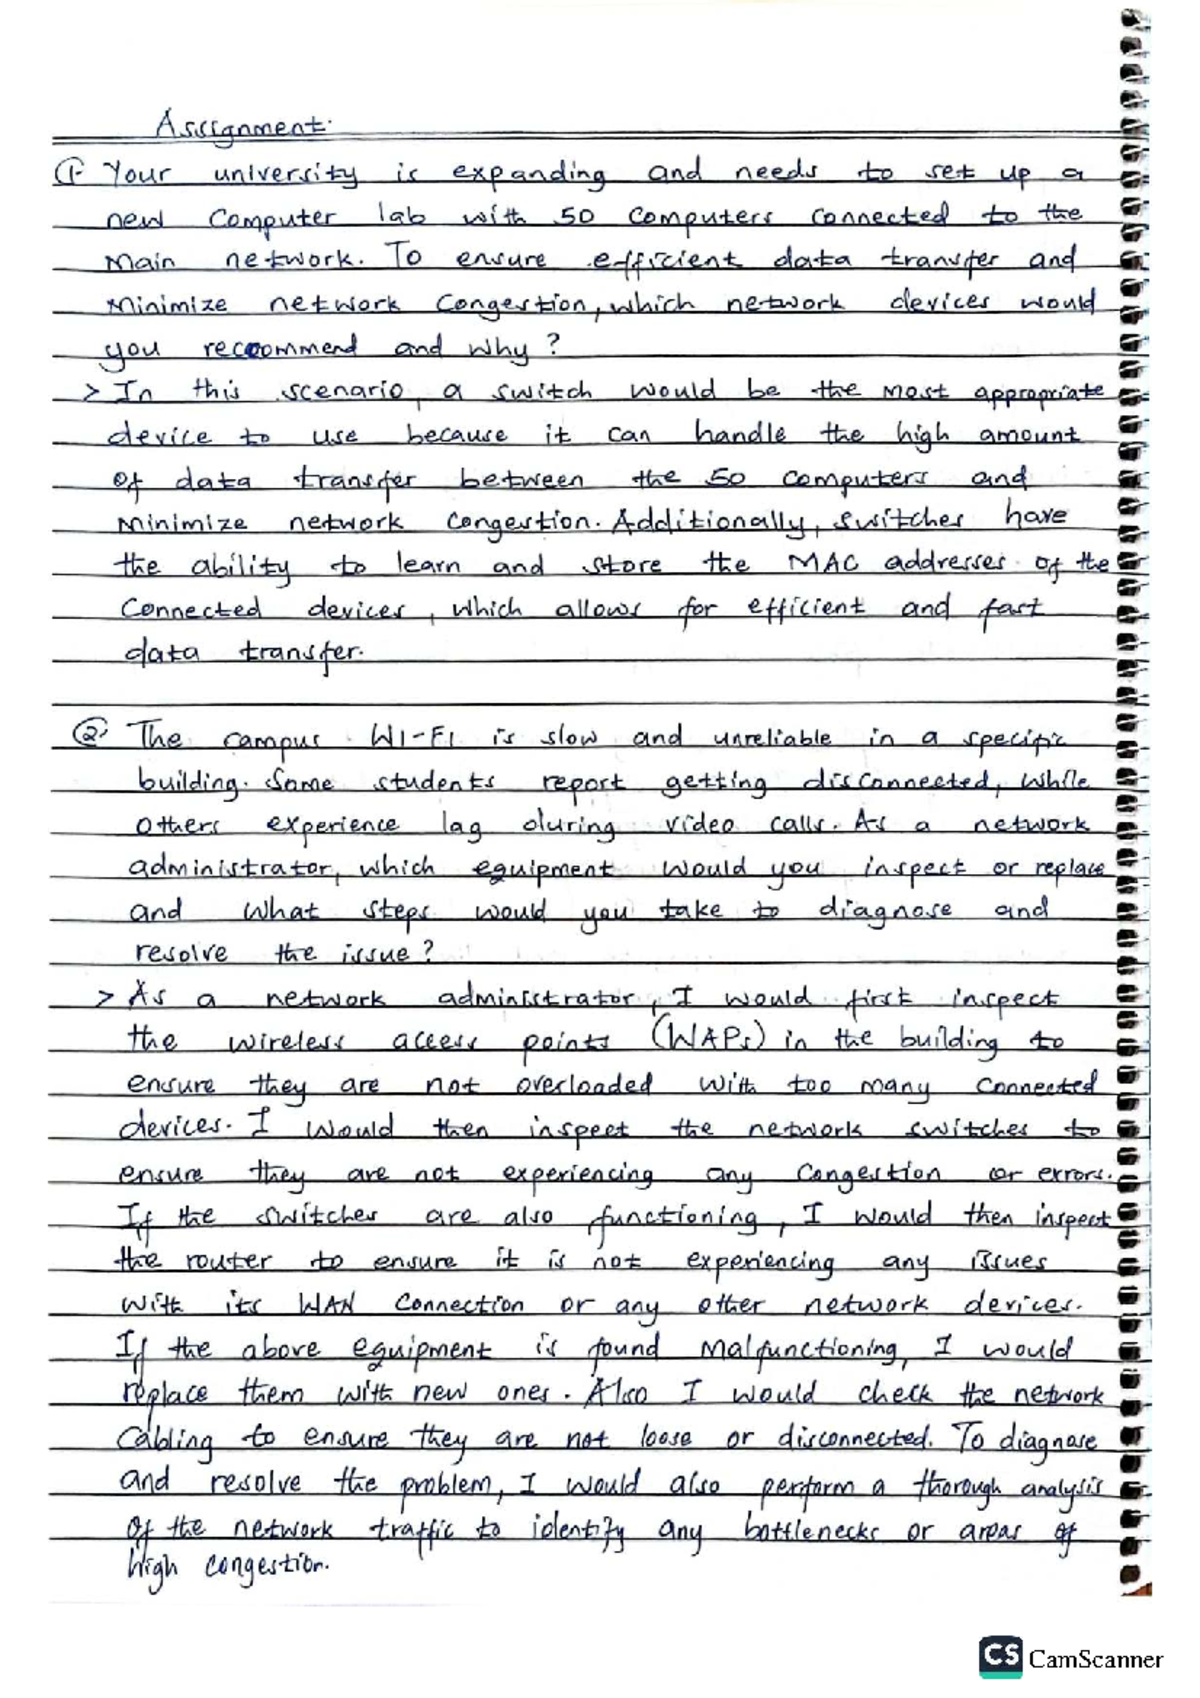 Assignment:
① Your university is expanding and needs to set up a
new Computer lab with 50 Computers Connected to the
Main network. To ensure efficient data transfer and
Minimize network Congestion, which network devices would
you recoommend and why?
> In this scenario, a switch would be the most appropriate
device to use because it can handle the high amount
of data transfer between the 50 computers and
Minimize network congestion. Additionally, switches have
the ability to learn and store the MAC addresses of the
Connected devices, which allows for efficient and fast
data transfer.
② The campus WI-FI is slow and unreliable in a specific
building. Some students report getting disconnected, while
others experience lag during video calls. As a network
administrator, which equipment would you inspect or replace
and what steps would you take to diagnose and
resolve the issue?
> As a network administrator, I would first inspect
the wireless access points (WAPs) in the building to
ensure they are not overloaded with too many connected
devices. I would then inspect the network switches to
ensure they are not experiencing any Congestion or errors.
If the switches are also functioning, I would then inspect
the router to ensure it is not experiencing any issues
with its WAN connection or any other network devices.
If the above equipment is found Malfunctioning, I would
replace them with new ones. Also I would check the network
Cabling to ensure they are not loose or disconnected. To diagnose
and resolve the problem, I would also perform a thorough analysis
of the network traffic to identify any bottlenecks or areas of
high congestion.
CS CamScanner